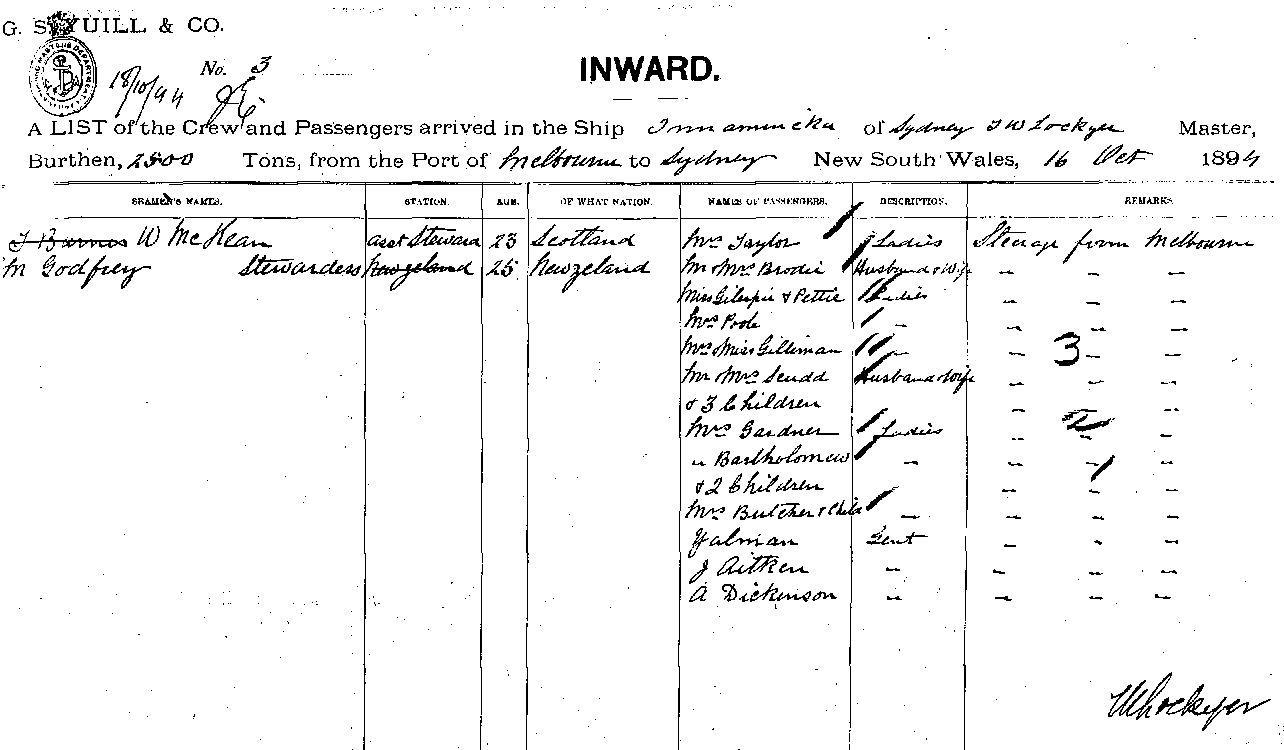 G. S. YUILL & CO.
18/10/94 No. 3
INWARD.
A LIST of the Crew and Passengers arrived in the Ship Innamincka of Sydney T W Lockyer Master,
Burthen, 2500 Tons, from the Port of Melbourne to Sydney New South Wales, 16 Oct 1894
SEAMEN'S NAMES. STATION. AGE. OF WHAT NATION. NAMES OF PASSENGERS. DESCRIPTION. REMARKS
J Barnes W McKean asst Steward 23 Scotland Mrs Taylor Ladies Steerage from Melbourne
M Godfrey Stewardess Newzeland 25 Newzeland Mr Mrs Brodie Husband & Wife " " "
Miss Gilespie & Pettie Ladies " " "
Mrs Poole " " " "
Mrs & Miss Gilliman " " 3 " "
Mr Mrs Scudd Husband & Wife " " "
& 3 Children " "
Mrs Gardner Ladies " 2 " "
" Bartholomew " " " "
& 2 Children " " "
Mrs Butcher & Child " " " "
Yalman Gent " " "
J Aitken " " " "
A Dickenson " " " "
TW Lockyer